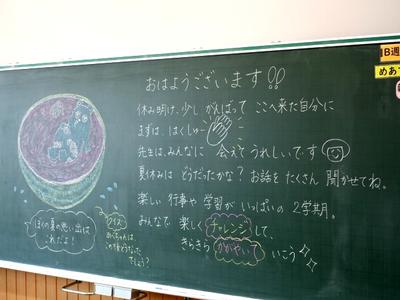 おはようございます!!
休み明け、少し がんばって ここへ来た自分に
まずは、はくしゅー
先生は、みんなに 会えて うれしいです
夏休みは どうだったかな？ お話を たくさん 聞かせてね。
楽しい 行事や 学習が いっぱいの 2学期。
みんなで 楽しく チャレンジ して、
きらきら かがやいて いこう
ぼくの夏の思い出は
これだよ！
クイズ
この夏どうなった
でしょう？
B週
めあ